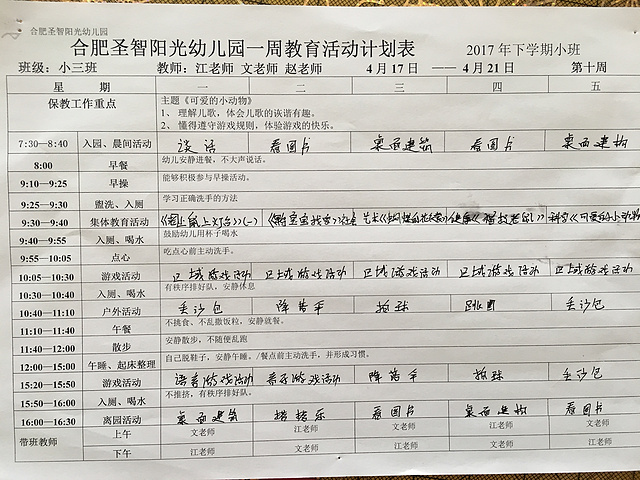 合肥圣智阳光幼儿园
合肥圣智阳光幼儿园一周教育活动计划表 2017年下学期小班
班级：小三班 教师：江老师 文老师 赵老师 4月17日 ——4月21日 第十周
星 期 一 二 三 四 五
保教工作重点 主题《可爱的小动物》
1、 理解儿歌，体会儿歌的诙谐有趣。
2、 懂得遵守游戏规则，体验游戏的快乐。
7:30—8:40 入园、晨间活动 谈话 看图片 桌面建筑 看图片 桌面建构
8:00 早餐 幼儿安静进餐，不大声说话。
9:10—9:25 早操 能够积极参与早操活动。
9:25—9:30 盥洗、入厕 学习正确洗手的方法
9:30—9:40 集体教育活动
9:40—9:55 入厕、喝水 鼓励幼儿用杯子喝水
9:55—10:05 点心 吃点心前主动洗手。
10:05—10:30 游戏活动 区域游戏活动 区域游戏活动 区域游戏活动 区域游戏活动 区域游戏活动
10:30—10:40 入厕、喝水 有秩序排好队，安静休息
10:40—11:10 户外活动 丢沙包 降落伞 拍球 跳圈 丢沙包
11:10—11:40 午餐 不挑食、不乱撒饭粒，安静就餐。
11:40—12:00 散步 安静散步，不随便乱跑
12:00—15:00 午睡、起床整理 自己脱鞋子，安静午睡。/餐点前主动洗手，并形成习惯。
15:20—15:50 游戏活动 语言游戏活动 亲子游戏活动 降落伞 拍球 丢沙包
15:50—16:00 入厕、喝水 不推挤，有秩序排好队。
16:00—16:30 离园活动 桌面建筑 搭搭乐 看图片 桌面建构 看图片
带班教师 上午 文老师 江老师 文老师 江老师 文老师
下午 江老师 文老师 江老师 文老师 江老师